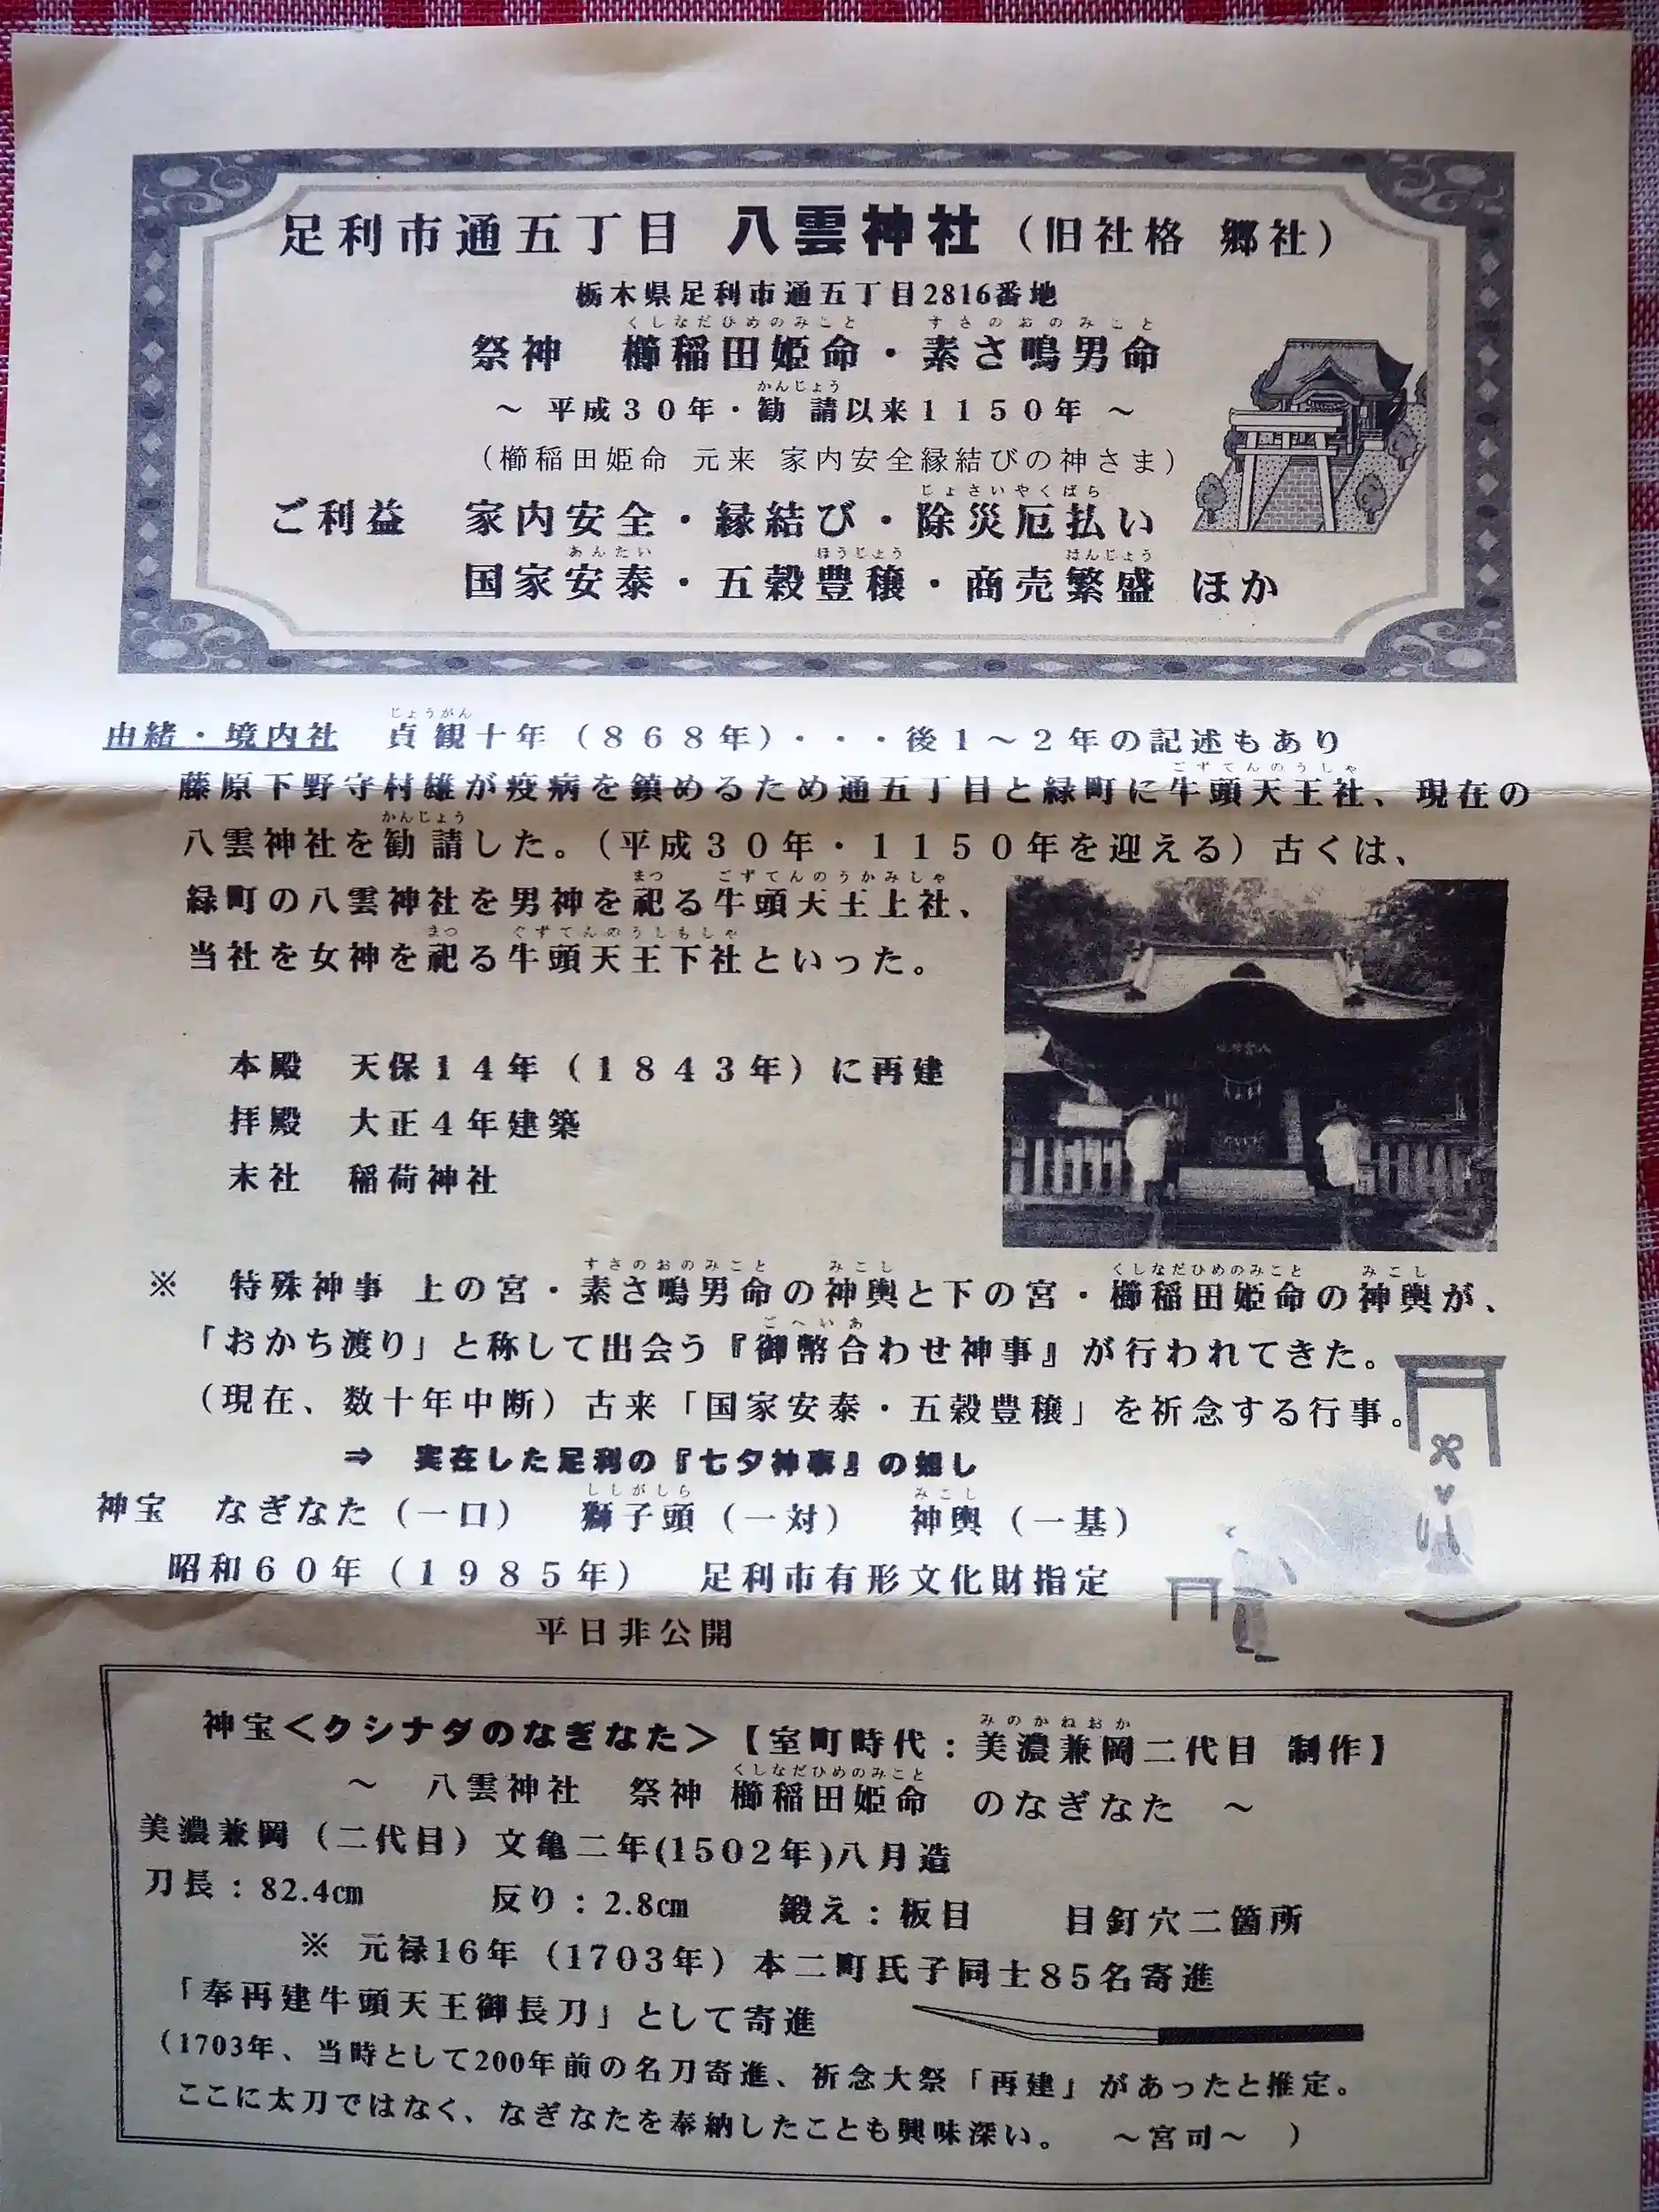 足利市通五丁目 八雲神社（旧社格 郷社）
栃木県足利市通五丁目2816番地
くしなだひめのみこと すさのおのみこと
祭神 櫛稲田姫命・素さ鳴男命
かんじょう
～ 平成３０年・勧請以来１１５０年 ～
（櫛稲田姫命 元来 家内安全縁結びの神さま）
じょさいやくばら
ご利益 家内安全・縁結び・除災厄払い
あんたい ほうじょう はんじょう
国家安泰・五穀豊穣・商売繁盛 ほか
じょうがん
由緒・境内社 貞観十年（８６８年）・・・後１～２年の記述もあり
ごずてんのうしゃ
藤原下野守村雄が疫病を鎮めるため通五丁目と緑町に牛頭天王社、現在の
かんじょう
八雲神社を勧請した。（平成３０年・１１５０年を迎える）古くは、
まつ ごずてんのうかみしゃ
緑町の八雲神社を男神を祀る牛頭天王上社、
まつ ぐずてんのうしもしゃ
当社を女神を祀る牛頭天王下社といった。
本殿 天保１４年（１８４３年）に再建
拝殿 大正４年建築
末社 稲荷神社
すさのおのみこと みこし くしなだひめのみこと みこし
※ 特殊神事 上の宮・素さ鳴男命の神輿と下の宮・櫛稲田姫命の神輿が、
ごへいあ
「おかち渡り」と称して出会う『御幣合わせ神事』が行われてきた。
（現在、数十年中断）古来「国家安泰・五穀豊穣」を祈念する行事。
⇒ 実在した足利の『七夕神事』の如し
ししがしら みこし
神宝 なぎなた（一口） 獅子頭（一対） 神輿（一基）
昭和６０年（１９８５年） 足利市有形文化財指定
平日非公開
みのかねおか
神宝＜クシナダのなぎなた＞【室町時代：美濃兼岡二代目 制作】
くしなだひめのみこと
～ 八雲神社 祭神 櫛稲田姫命 のなぎなた ～
美濃兼岡（二代目）文亀二年(1502年)八月造
刀長：82.4㎝ 反り：2.8㎝ 鍛え：板目 目釘穴二箇所
※ 元禄16年（1703年）本二町氏子同士85名寄進
「奉再建牛頭天王御長刀」として寄進
（1703年、当時として200年前の名刀寄進、祈念大祭「再建」があったと推定。
ここに太刀ではなく、なぎなたを奉納したことも興味深い。 ～宮司～ ）